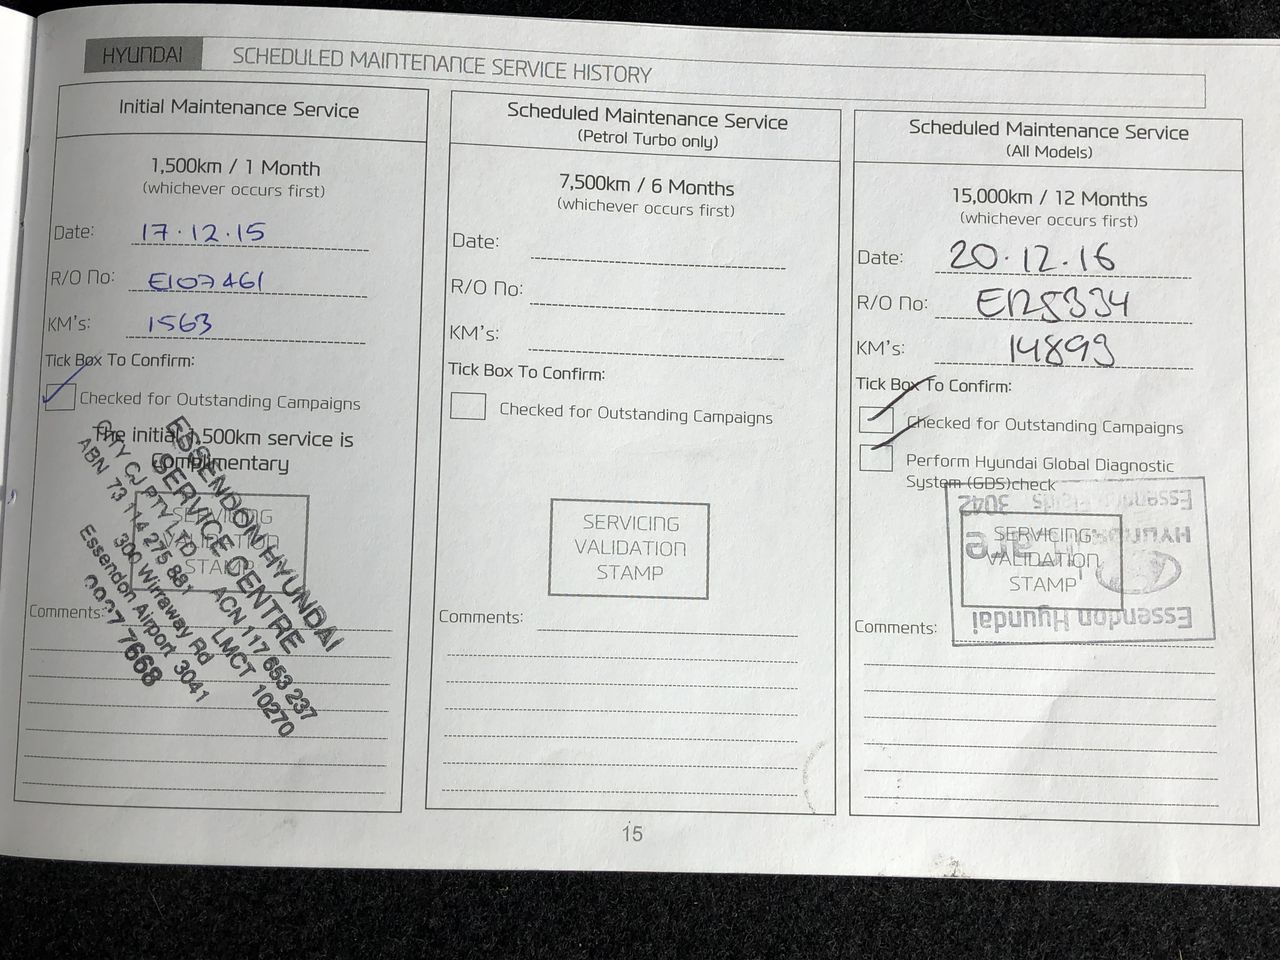 HYUNDAI SCHEDULED MAINTENANCE SERVICE HISTORY
Initial Maintenance Service
1,500km / 1 Month
(whichever occurs first)
Date: 17.12.15
R/O No: E107461
KM's: 1563
Tick Box To Confirm:
Checked for Outstanding Campaigns
The initial 1,500km service is
Complimentary
SERVICING
VALIDATION
STAMP
ESSENDON HYUNDAI
SERVICE CENTRE
PTY CJ PTY LTD ACN 117 653 237
ABN 73 114 275 881 LMCT 10270
300 Wirraway Rd
Essendon Airport 3041
7668
Comments:
Scheduled Maintenance Service
(Petrol Turbo only)
7,500km / 6 Months
(whichever occurs first)
Date:
R/O No:
KM's:
Tick Box To Confirm:
Checked for Outstanding Campaigns
SERVICING
VALIDATION
STAMP
Comments:
Scheduled Maintenance Service
(All Models)
15,000km / 12 Months
(whichever occurs first)
Date: 20.12.16
R/O No: E125334
KM's: 14899
Tick Box To Confirm:
Checked for Outstanding Campaigns
Perform Hyundai Global Diagnostic
System (GDS)check
SERVICING
VALIDATION
STAMP
Essendon Hyundai
HYUNDAI
Essendon Fields 3042
Comments:
15